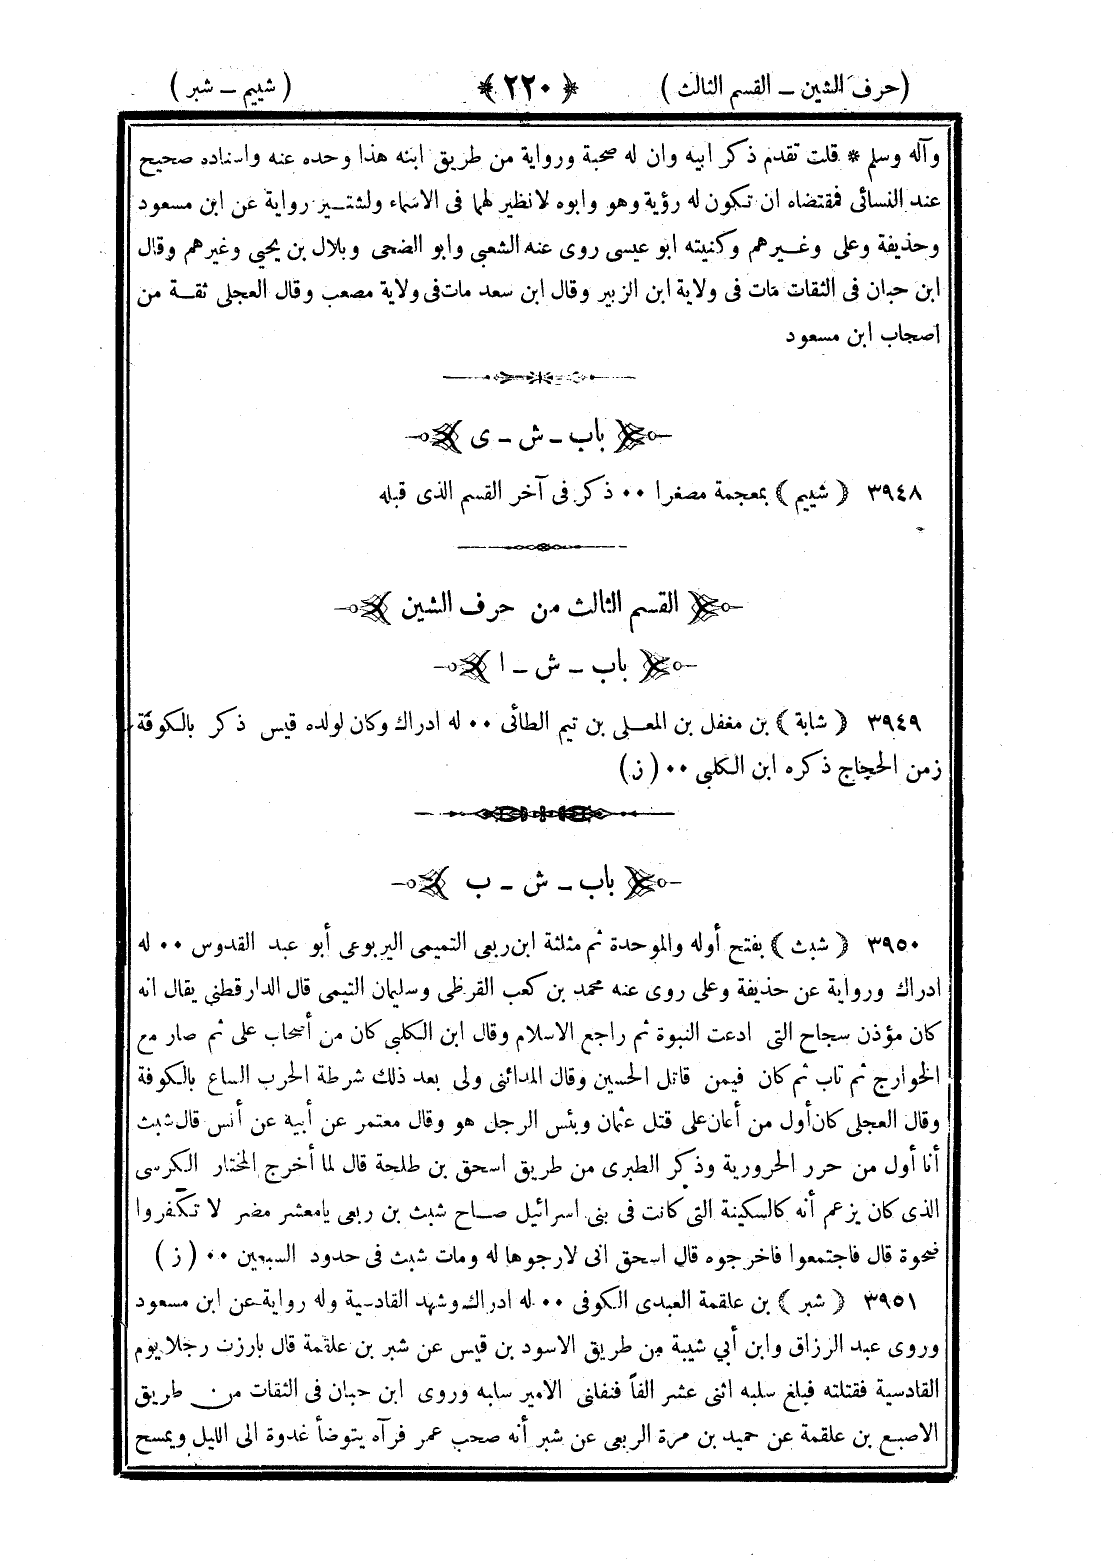 (حرف الشين ــ القسم الثالث) ﴿٢٢٠﴾ (شييم ــ شبر)
وآله وسلم * قلت تقدم ذكر ابيه وان له صحبة ورواية من طريق ابنه هذا وحده عنه واسناده صحيح
عند النسائى فمقتضاه ان تكون له رؤية وهو وابوه لانظير لهما فى الاسماء ولشتــير رواية عن ابن مسعود
وحذيفة وعلى وغــيرهم وكنيته ابو عيسى روى عنه الشعبي وابو الضحى وبلال بن يحيي وغيرهم وقال
ابن حبان فى الثقات مات فى ولاية ابن الزبير وقال ابن سعد مات فى ولاية مصعب وقال العجلى ثقــة من
اصحاب ابن مسعود
باب ــ ش ــ ى
٣٩٤٨ ﴿ شييم ﴾ بمعجمة مصغرا ٠٠ ذكر فى آخر القسم الذى قبله
القسم الثالث من حرف الشين
باب ــ ش ــ ا
٣٩٤٩ ﴿ شابة ﴾ بن مغفل بن المعــلى بن تيم الطائى ٠٠ له ادراك وكان لولده قيس ذكر بالكوفة
زمن الحجاج ذكره ابن الكلبى ٠٠ (ز)
باب ــ ش ــ ب
٣٩٥٠ ﴿ شبث ﴾ بفتح أوله والموحدة ثم مثلثة ابن ربعى التميمى اليربوعى أبو عبد القدوس ٠٠ له
ادراك ورواية عن حذيفة وعلى روى عنه محمد بن كعب القرظى وسليمان التيمى قال الدارقطني يقال انه
كان مؤذن سجاح التى ادعت النبوة ثم راجع الاسلام وقال ابن الكلبى كان من أصحاب على ثم صار مع
الخوارج ثم تاب ثم كان فيمن قاتل الحسين وقال المدائنى ولى بعد ذلك شرطة الحرب الساع بالكوفة
وقال العجلى كان أول من أعان على قتل عثمان وبئس الرجل هو وقال معتمر عن أبيه عن أنس قال شبث
أنا أول من حرر الحرورية وذكر الطبرى من طريق اسحق بن طلحة قال لما أخرج المختار الكرسى
الذى كان يزعم أنه كالسكينة التى كانت فى بنى اسرائيل صــاح شبث بن ربعى يامعشر مضر لا تكفروا
ضحوة قال فاجتمعوا فاخرجوه قال اسحق انى لارجوها له ومات شبث فى حدود السبعين ٠٠ ( ز )
٣٩٥١ ﴿ شبر ﴾ بن علقمة العبدى الكوفى ٠٠ له ادراك وشهد القادسية وله رواية عن ابن مسعود
وروى عبد الرزاق وابن أبي شيبة من طريق الاسود بن قيس عن شبر بن علقمة قال بارزت رجلا يوم
القادسية فقتلته فبلغ سلبه اثنى عشر الفاً فنفلنى الامير سلبه وروى ابن حبان فى الثقات من طريق
الاصبع بن علقمة عن حميد بن مرة الربعى عن شبر أنه صحب عمر فرآه يتوضأ غدوة الى الليل ويمسح